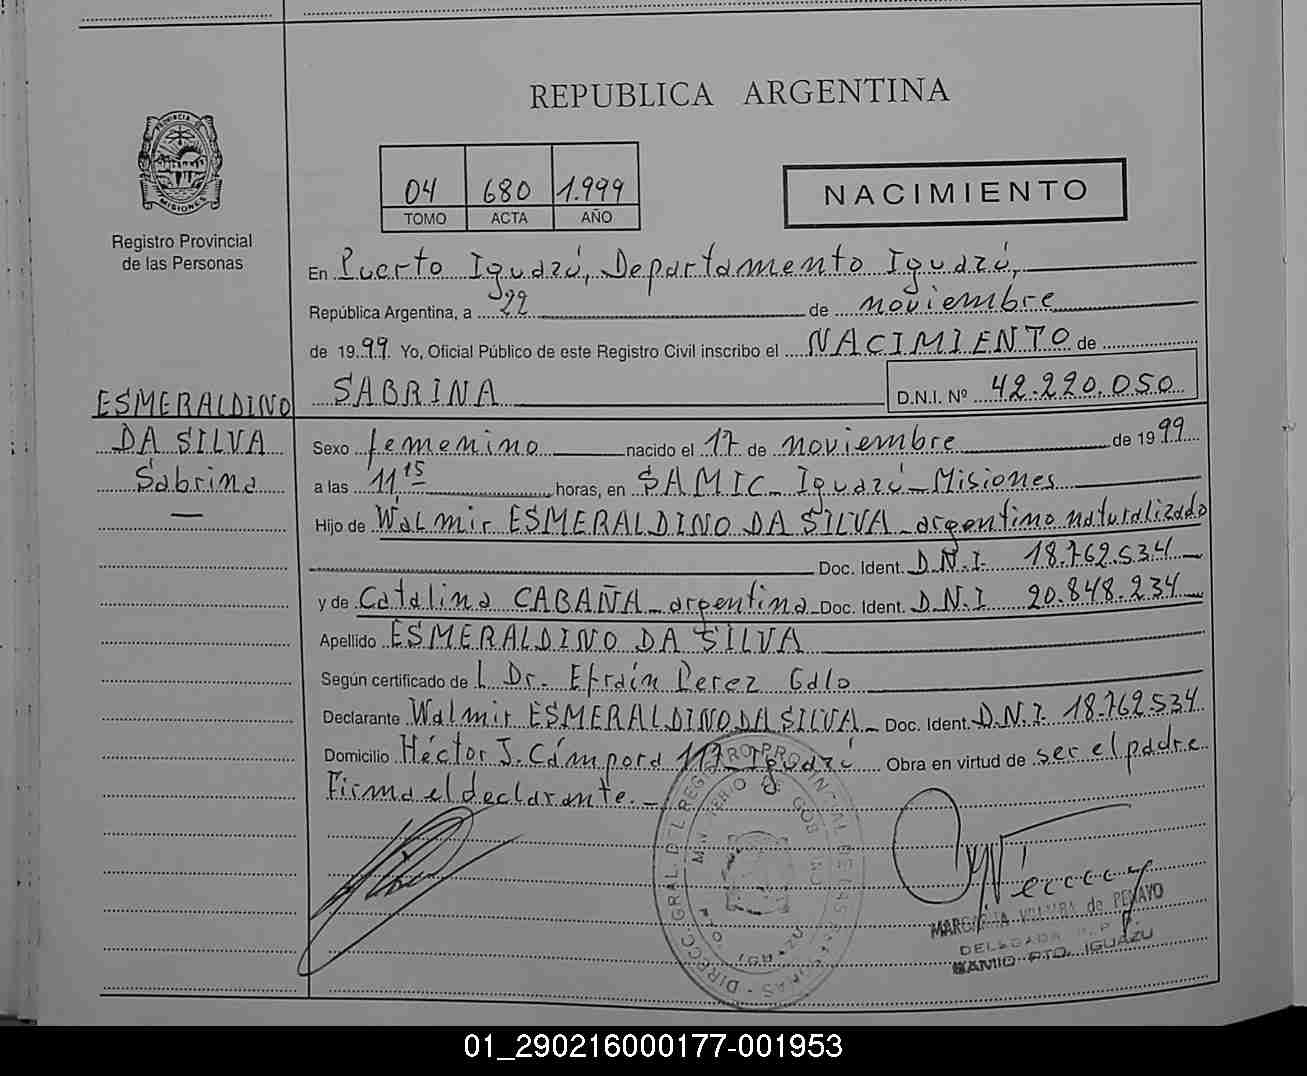 REPUBLICA ARGENTINA
PROVINCIA DE
MISIONES
Registro Provincial
de las Personas
04 680 1.999
TOMO ACTA AÑO
NACIMIENTO
En Puerto Iguazú, Departamento Iguazú,
República Argentina, a 22 de noviembre
de 1999. Yo, Oficial Público de este Registro Civil inscribo el NACIMIENTO de
SABRINA D.N.I. Nº 42.220.050
ESMERALDINO
DA SILVA
Sabrina
—
Sexo femenino nacido el 17 de noviembre de 1999
a las 11 15 horas, en SAMIC - Iguazú - Misiones
Hijo de Walmir ESMERALDINO DA SILVA - argentino naturalizado
Doc. Ident. D.N.I. 18.762.534
y de Catalina CABAÑA - argentina Doc. Ident. D.N.I 20.848.234
Apellido ESMERALDINO DA SILVA
Según certificado de l Dr. Efraín Perez Galo
Declarante Walmir ESMERALDINO DA SILVA - Doc. Ident. D.N.I. 18.762.534
Domicilio Héctor J. Cámpora 117 - Iguazú Obra en virtud de ser el padre.
Firma el declarante. -
DIRECC. GRAL. DEL REGISTRO PROVINCIAL DE LAS PERSONAS
MARGARITA de PENAYO
DELEGADA R. P. P.
SAMIC PTO. IGUAZU
01_290216000177-001953